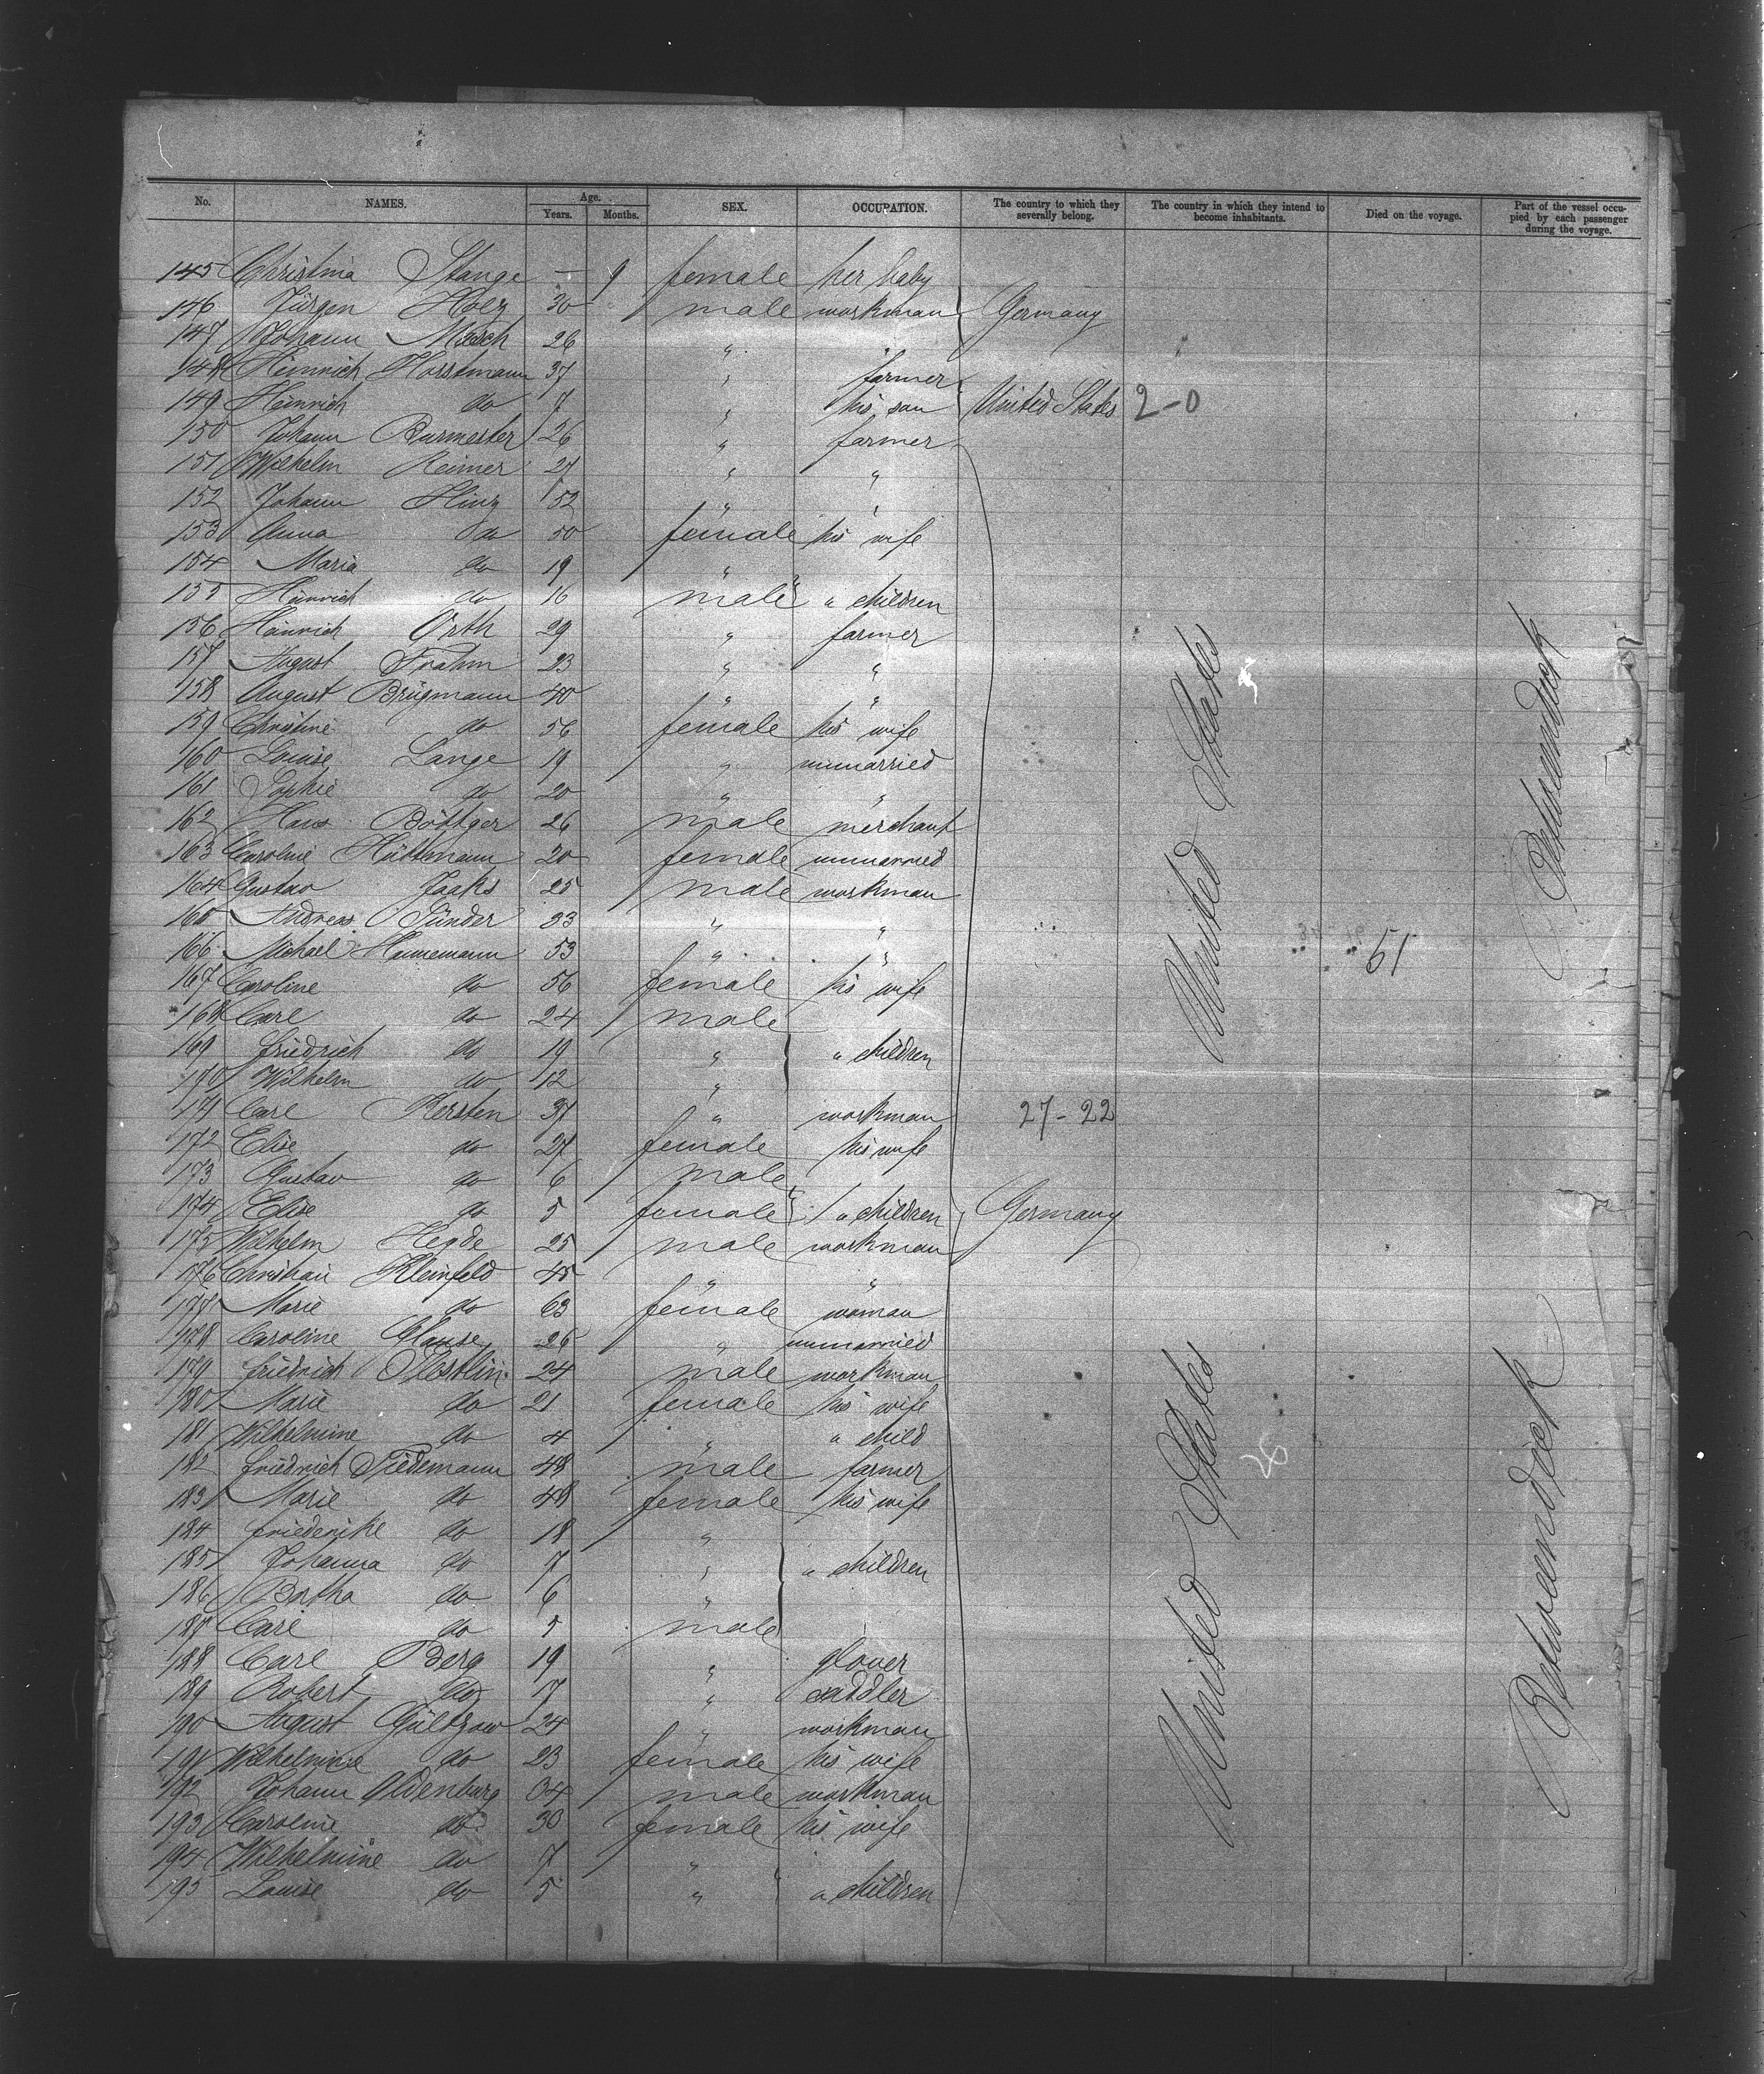 No. NAMES. Age. Years. Months. SEX. OCCUPATION. The country to which they severally belong. The country in which they intend to become inhabitants. Died on the voyage. Part of the vessel occupied by each passenger during the voyage.
145 Christina Stange — 9 female her baby
146 Jürgen Holz 30 male workman Germany
147 Johann Masch 26 "
148 Heinrich Horstmann 37 " farmer
149 Heinrich do 7 " his son United States 2-0
150 Johann Burmester 26 " farmer
151 Wilhelm Reimer 27 " "
152 Johann Hinz 52 " "
153 Anna do 50 female his wife
154 Maria do 19 "
155 Heinrich do 16 male " children
156 Heinrich Orth 29 " farmer
157 August Frahm 23 " "
158 August Brügmann 40 " "
159 Christine do 56 female his wife
160 Louise Lange 19 " unmarried
161 Sophie do 20 " "
162 Hans Böttger 26 male merchant
163 Caroline Hüttmann 20 female unmarried
164 Gustav Jaaks 25 male workman
165 Andreas Sünder 23 " "
166 Michael Hannemann 53 " " 51
167 Caroline do 56 female his wife
168 Carl do 24 male
169 Friedrich do 19 " " children
170 Wilhelm do 12 "
171 Carl Kersten 31 " workman 27-22
172 Elise do 27 female his wife
173 Gustav do 6 male
174 Elise do 5 female " children Germany
175 Wilhelm Hegde 25 male workman
176 Christian Kleinfeld 45 " "
177 Marie do 63 female woman
178 Caroline Clause 26 " unmarried
179 Friedrich 24 male workman
180 Marie do 21 female his wife
181 Wilhelmine do 4 " " child
182 Friedrich Tiedemann 48 male farmer
183 Marie do 48 female his wife
184 Friederike do 18 "
185 Johanna do 7 " " children
186 Bertha do 6 "
187 Carl do 5 male
188 Carl Berg 19 " glover
189 Robert do 7 " saddler
190 August Gültzow 24 " workman
191 Wilhelmine do 23 female his wife
192 Johann Oldenburg 34 male workman
193 Caroline do 30 female his wife
194 Wilhelmine do 7 "
195 Louise do 5 " " children
United States
Betweendeck
United States
Betweendeck